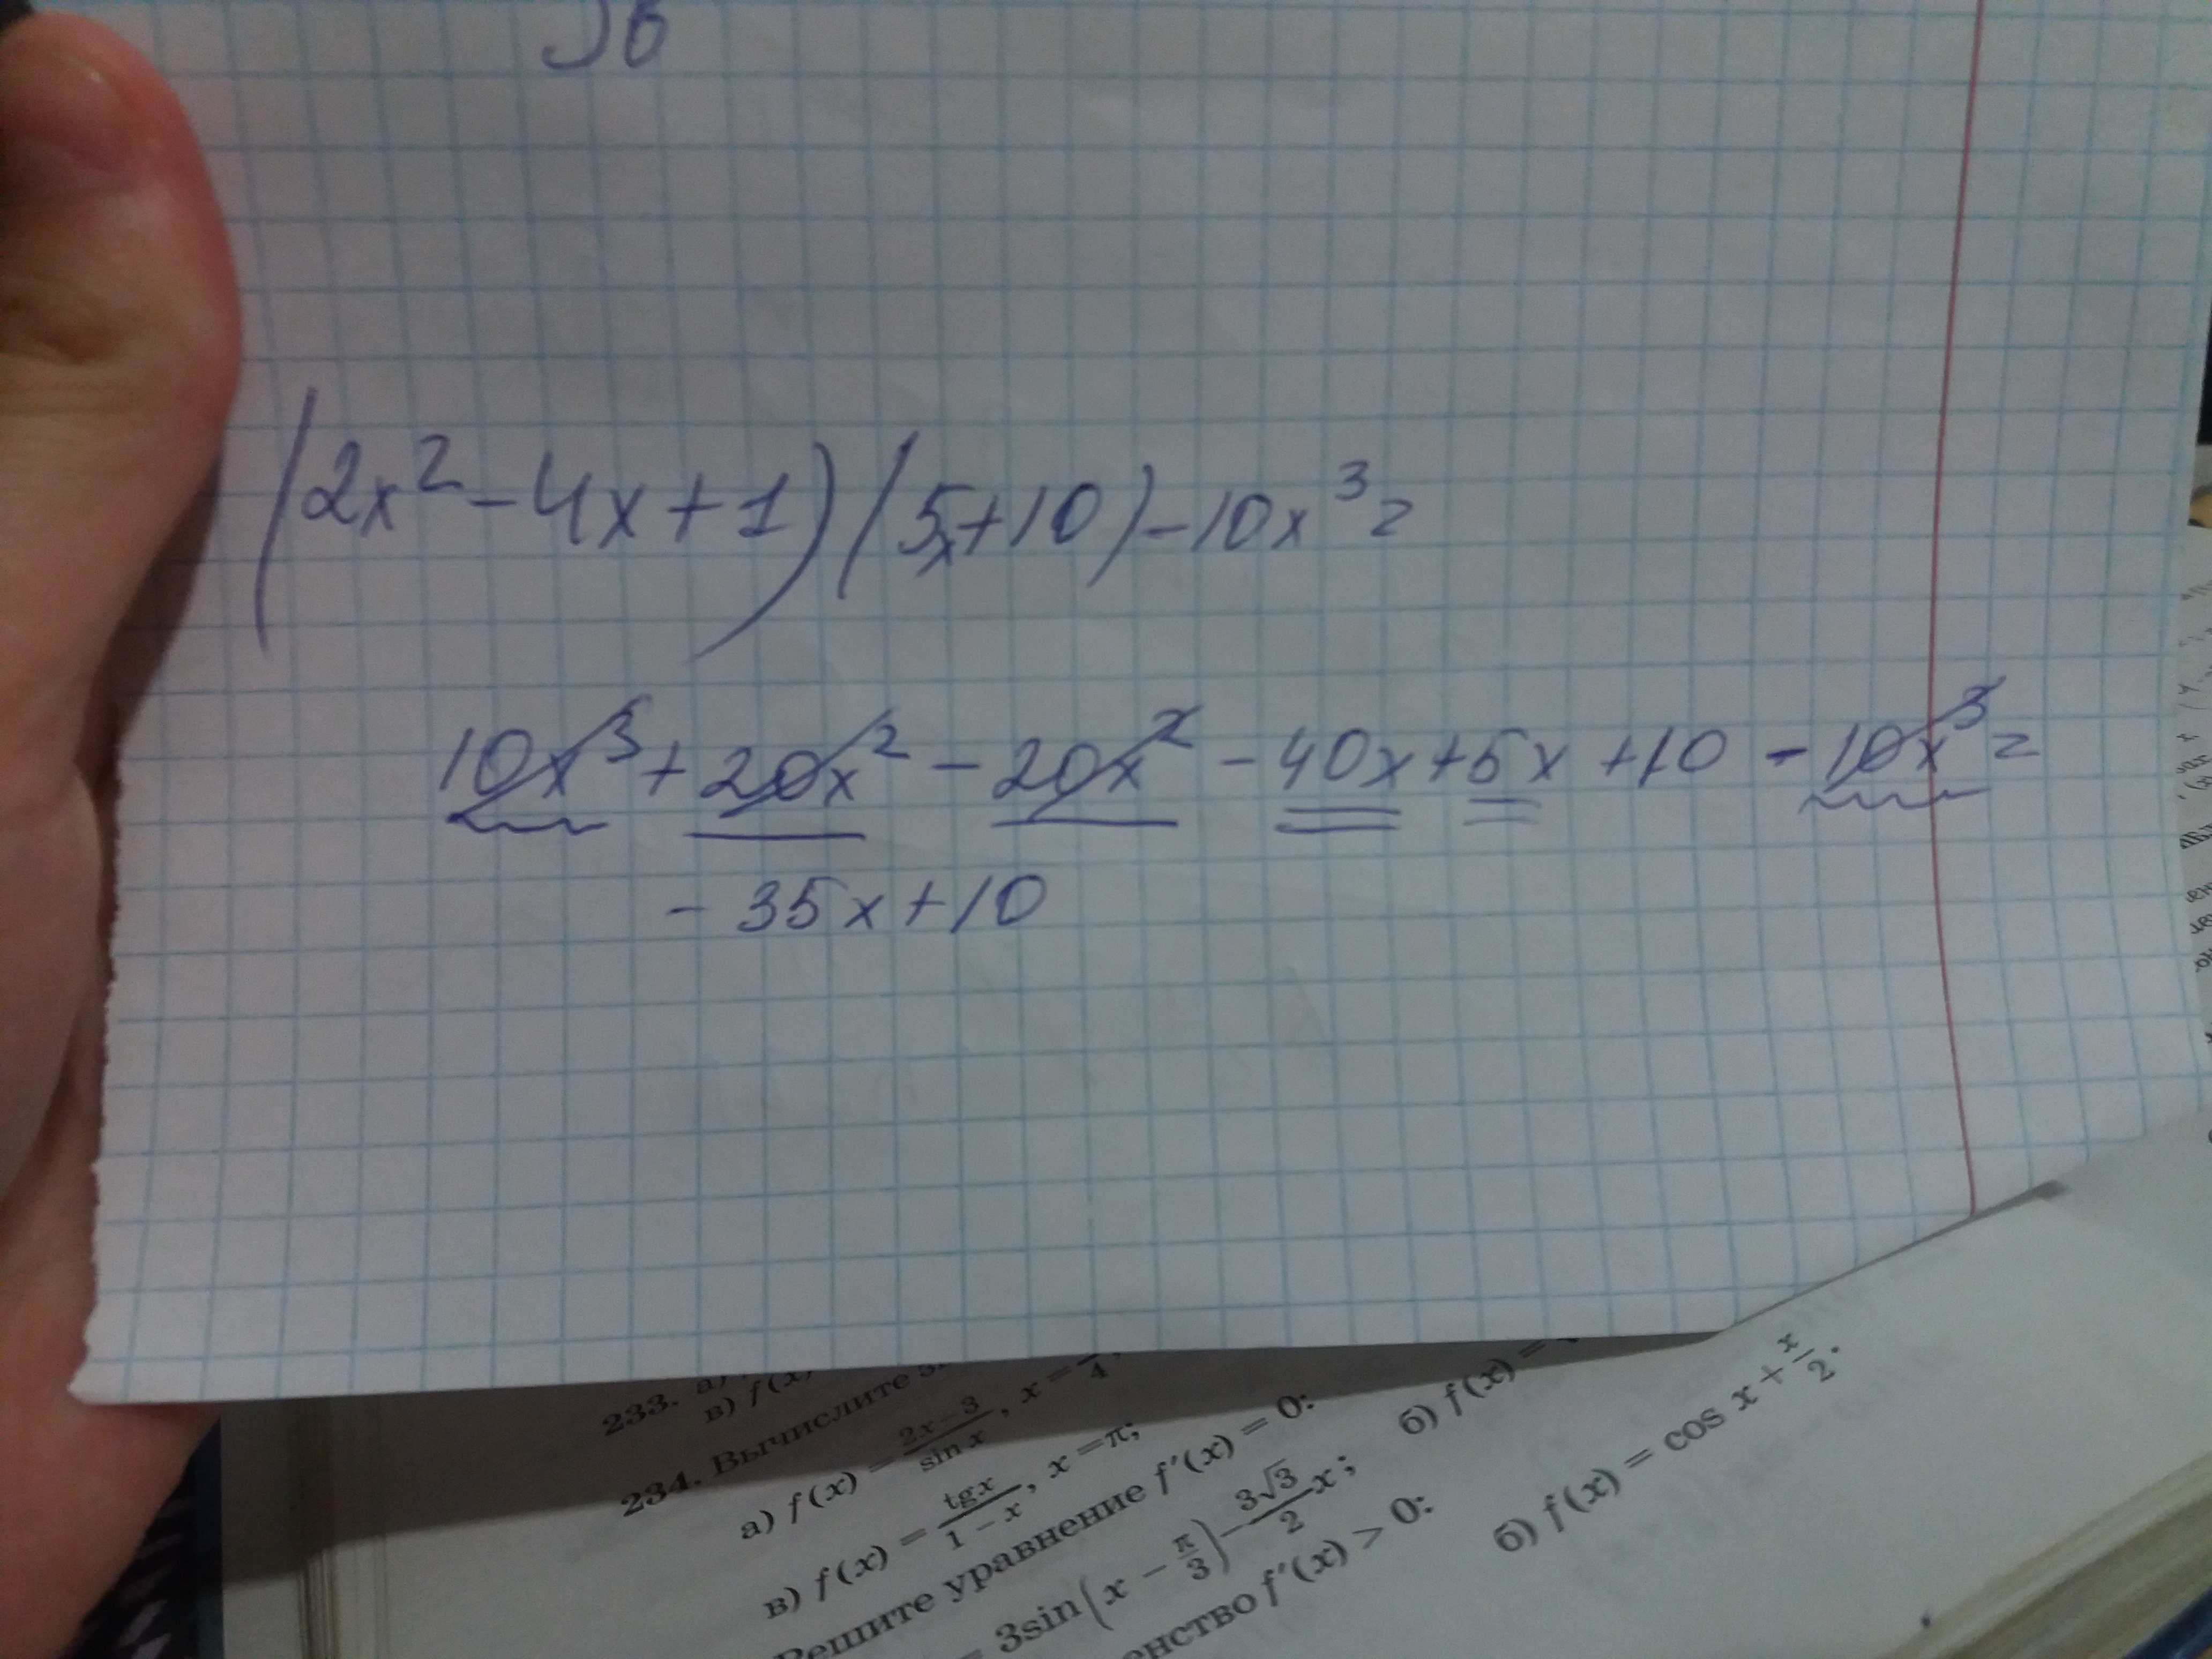 36
(2x² - 4x + 1)(5x + 10) - 10x³ =
10x³ + 20x² - 20x² - 40x + 5x + 10 - 10x³ =
- 35x + 10
233. а)
в) f(x)
234. Вычислите
а) f(x) = (2x - 3)/sin x, x = /4,
в) f(x) = tg x/(1 - x), x = π;
б) f(x) =
Решите уравнение f'(x) = 0:
= 3sin(x - π/3) - 3√3/2 x;
б) f(x) = cos x + x/2.
f'(x) > 0: